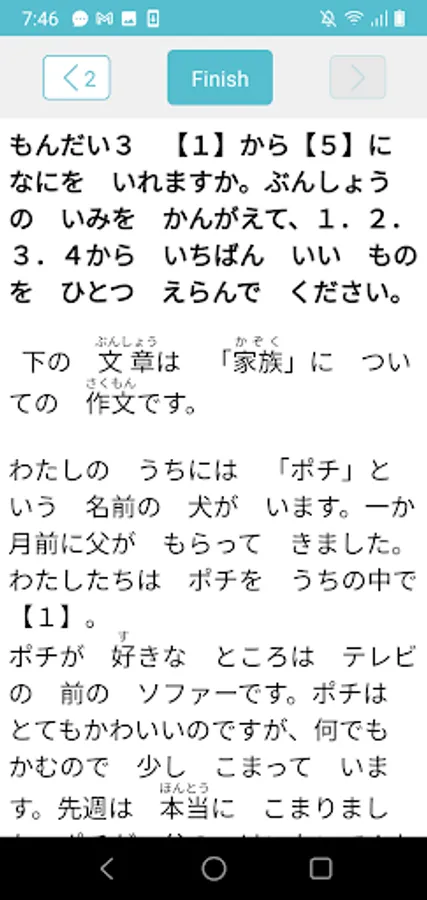 7:46
2
Finish
もんだい３　【１】から【５】に
なにを　いれますか。ぶんしょう
の　いみを　かんがえて、１．２．
３．４から　いちばん　いい　もの
を　ひとつ　えらんで　ください。
ぶんしょう　かぞく
下の　文章は　「家族」に　つい
さくもん
ての　作文です。
わたしの　うちには　「ポチ」と
いう　名前の　犬が　います。一か
月前に父が　もらって　きました。
わたしたちは　ポチを　うちの中で
【１】。
す
ポチが　好きな　ところは　テレビ
の　前の　ソファーです。ポチは
とてもかわいいのですが、何でも
かむので　少し　こまって　いま
ほんとう
す。先週は　本当に　こまりまし